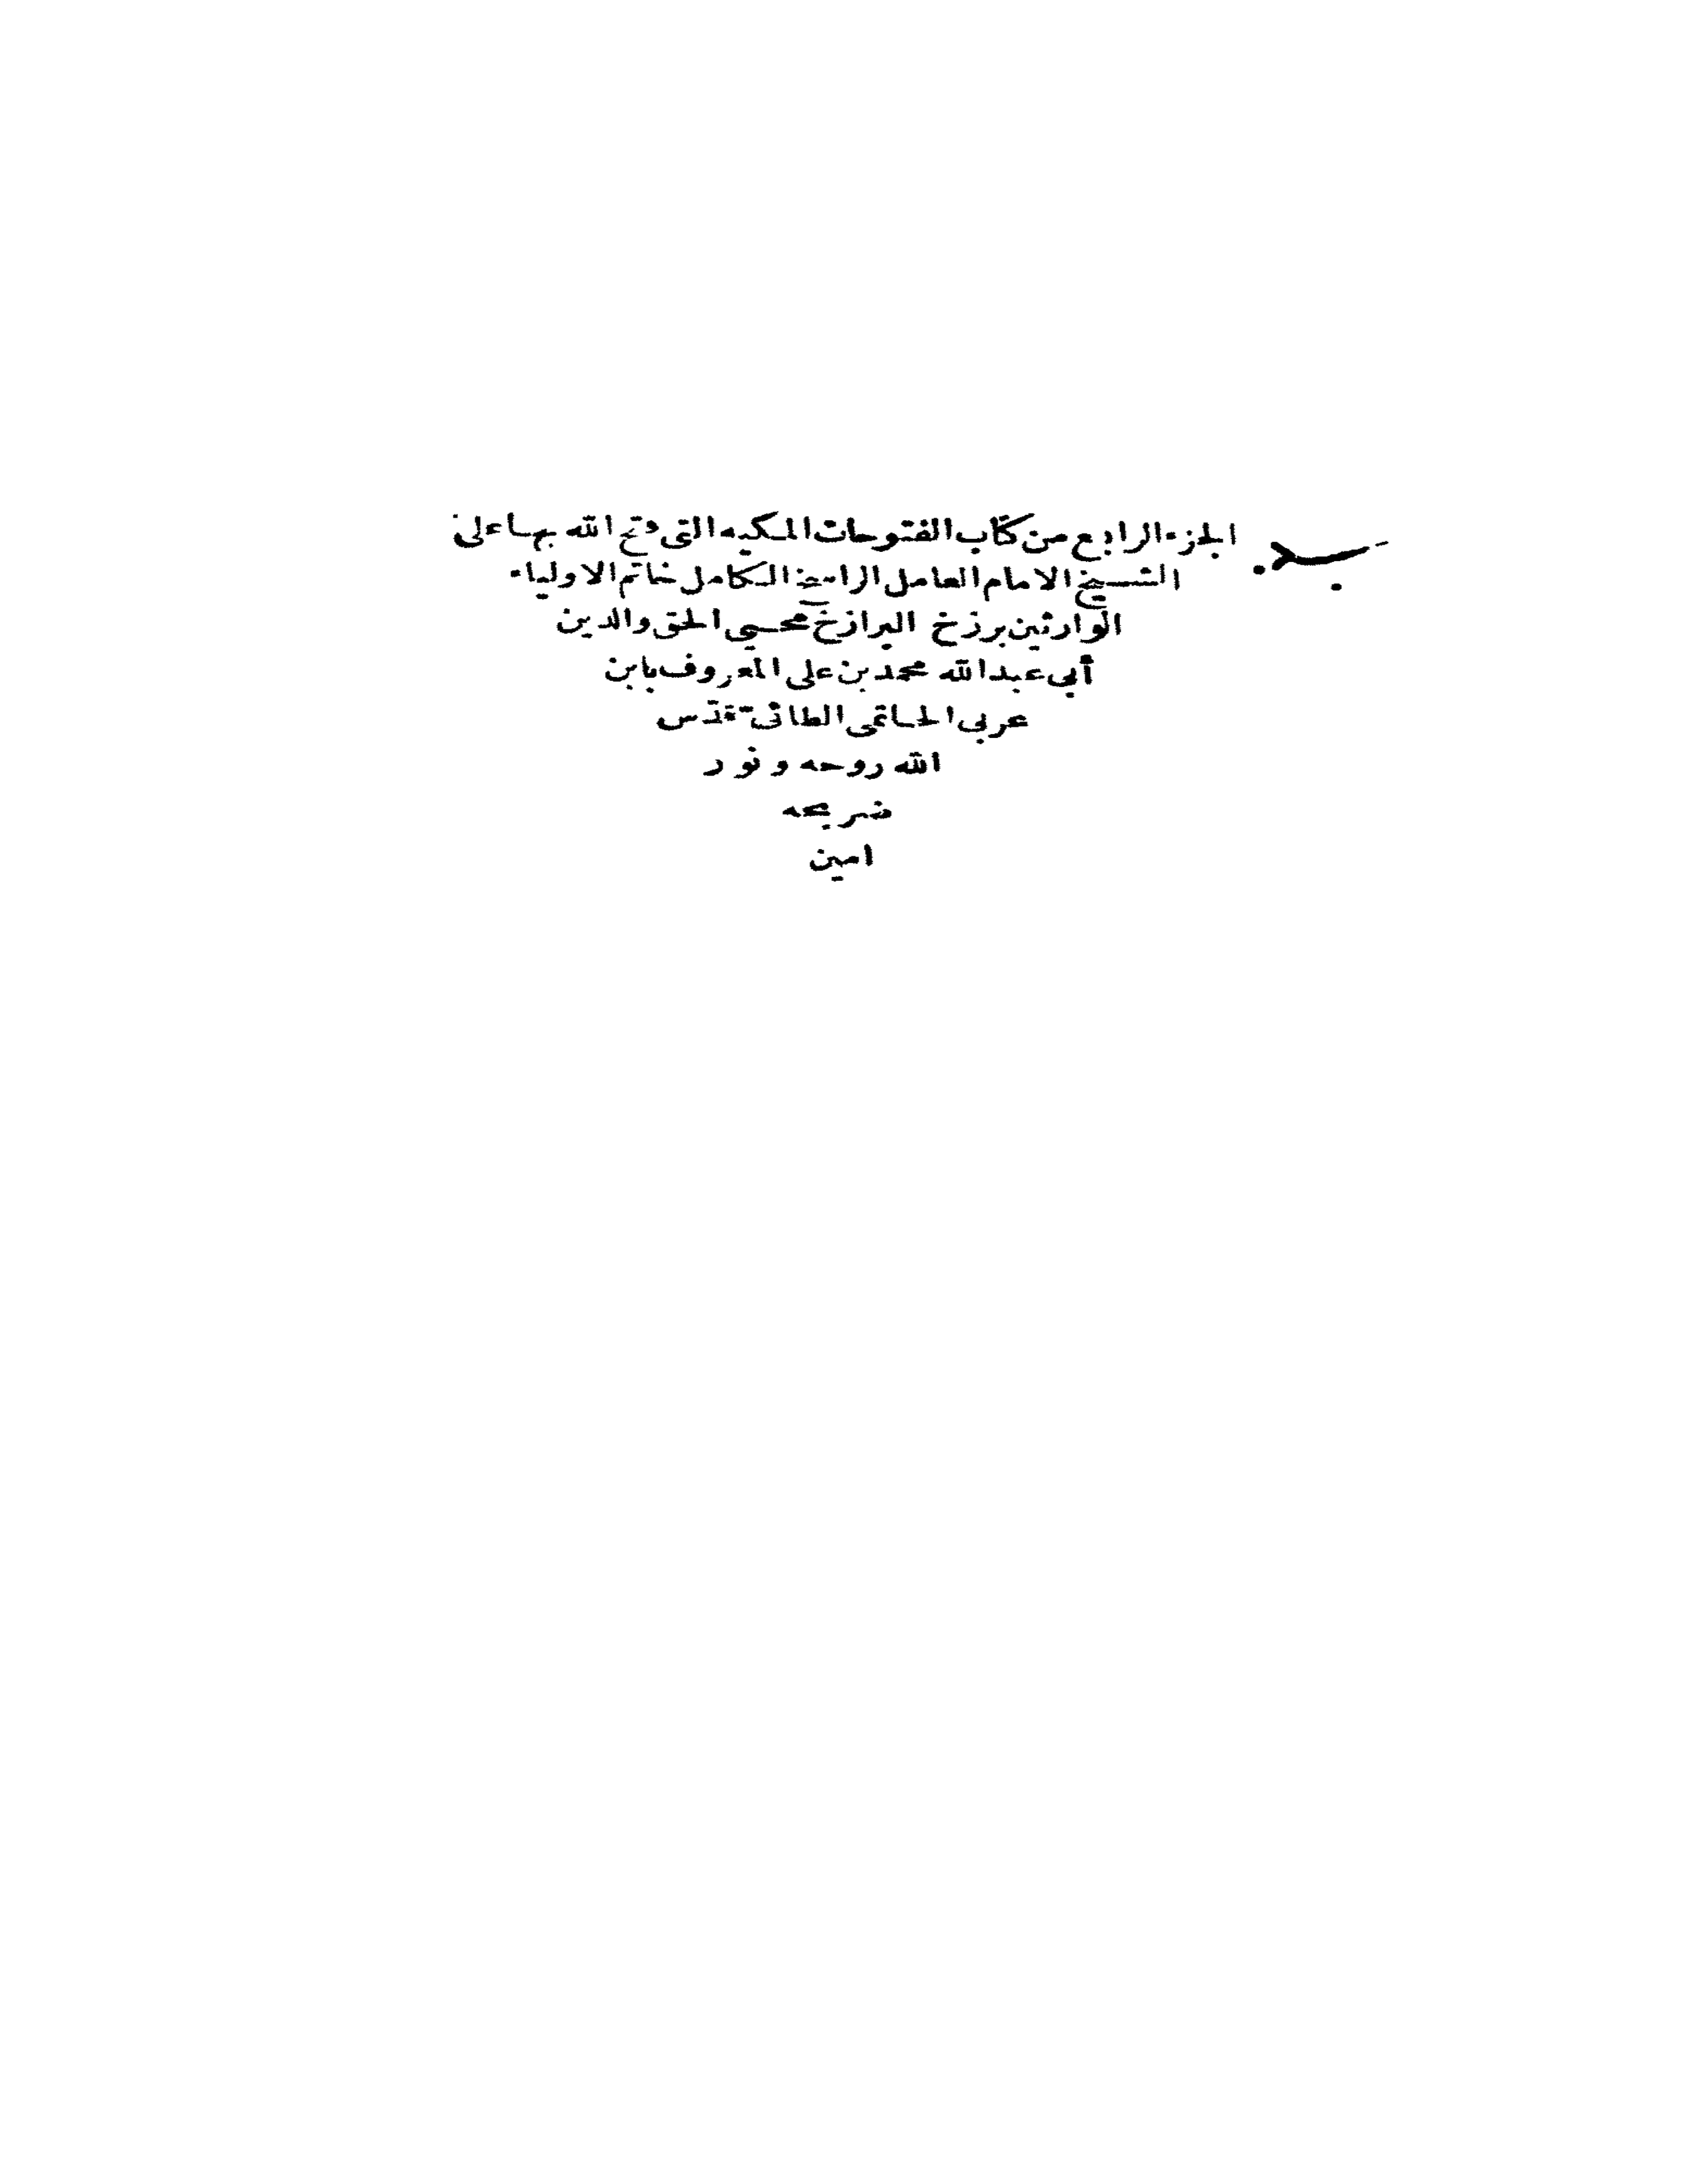 الجزء الرابع من كتاب الفتوحات المكيه التى فتح الله بها على
الشيخ الامام العامل الراسخ الكامل خاتم الاولياء
الوارثين برزخ البرازخ محيي الحق والدين
أبي عبدالله محمد بن على المعروف بابن
عربي الحاتمى الطائى قدّس
الله روحه ونور
ضريحه
امين